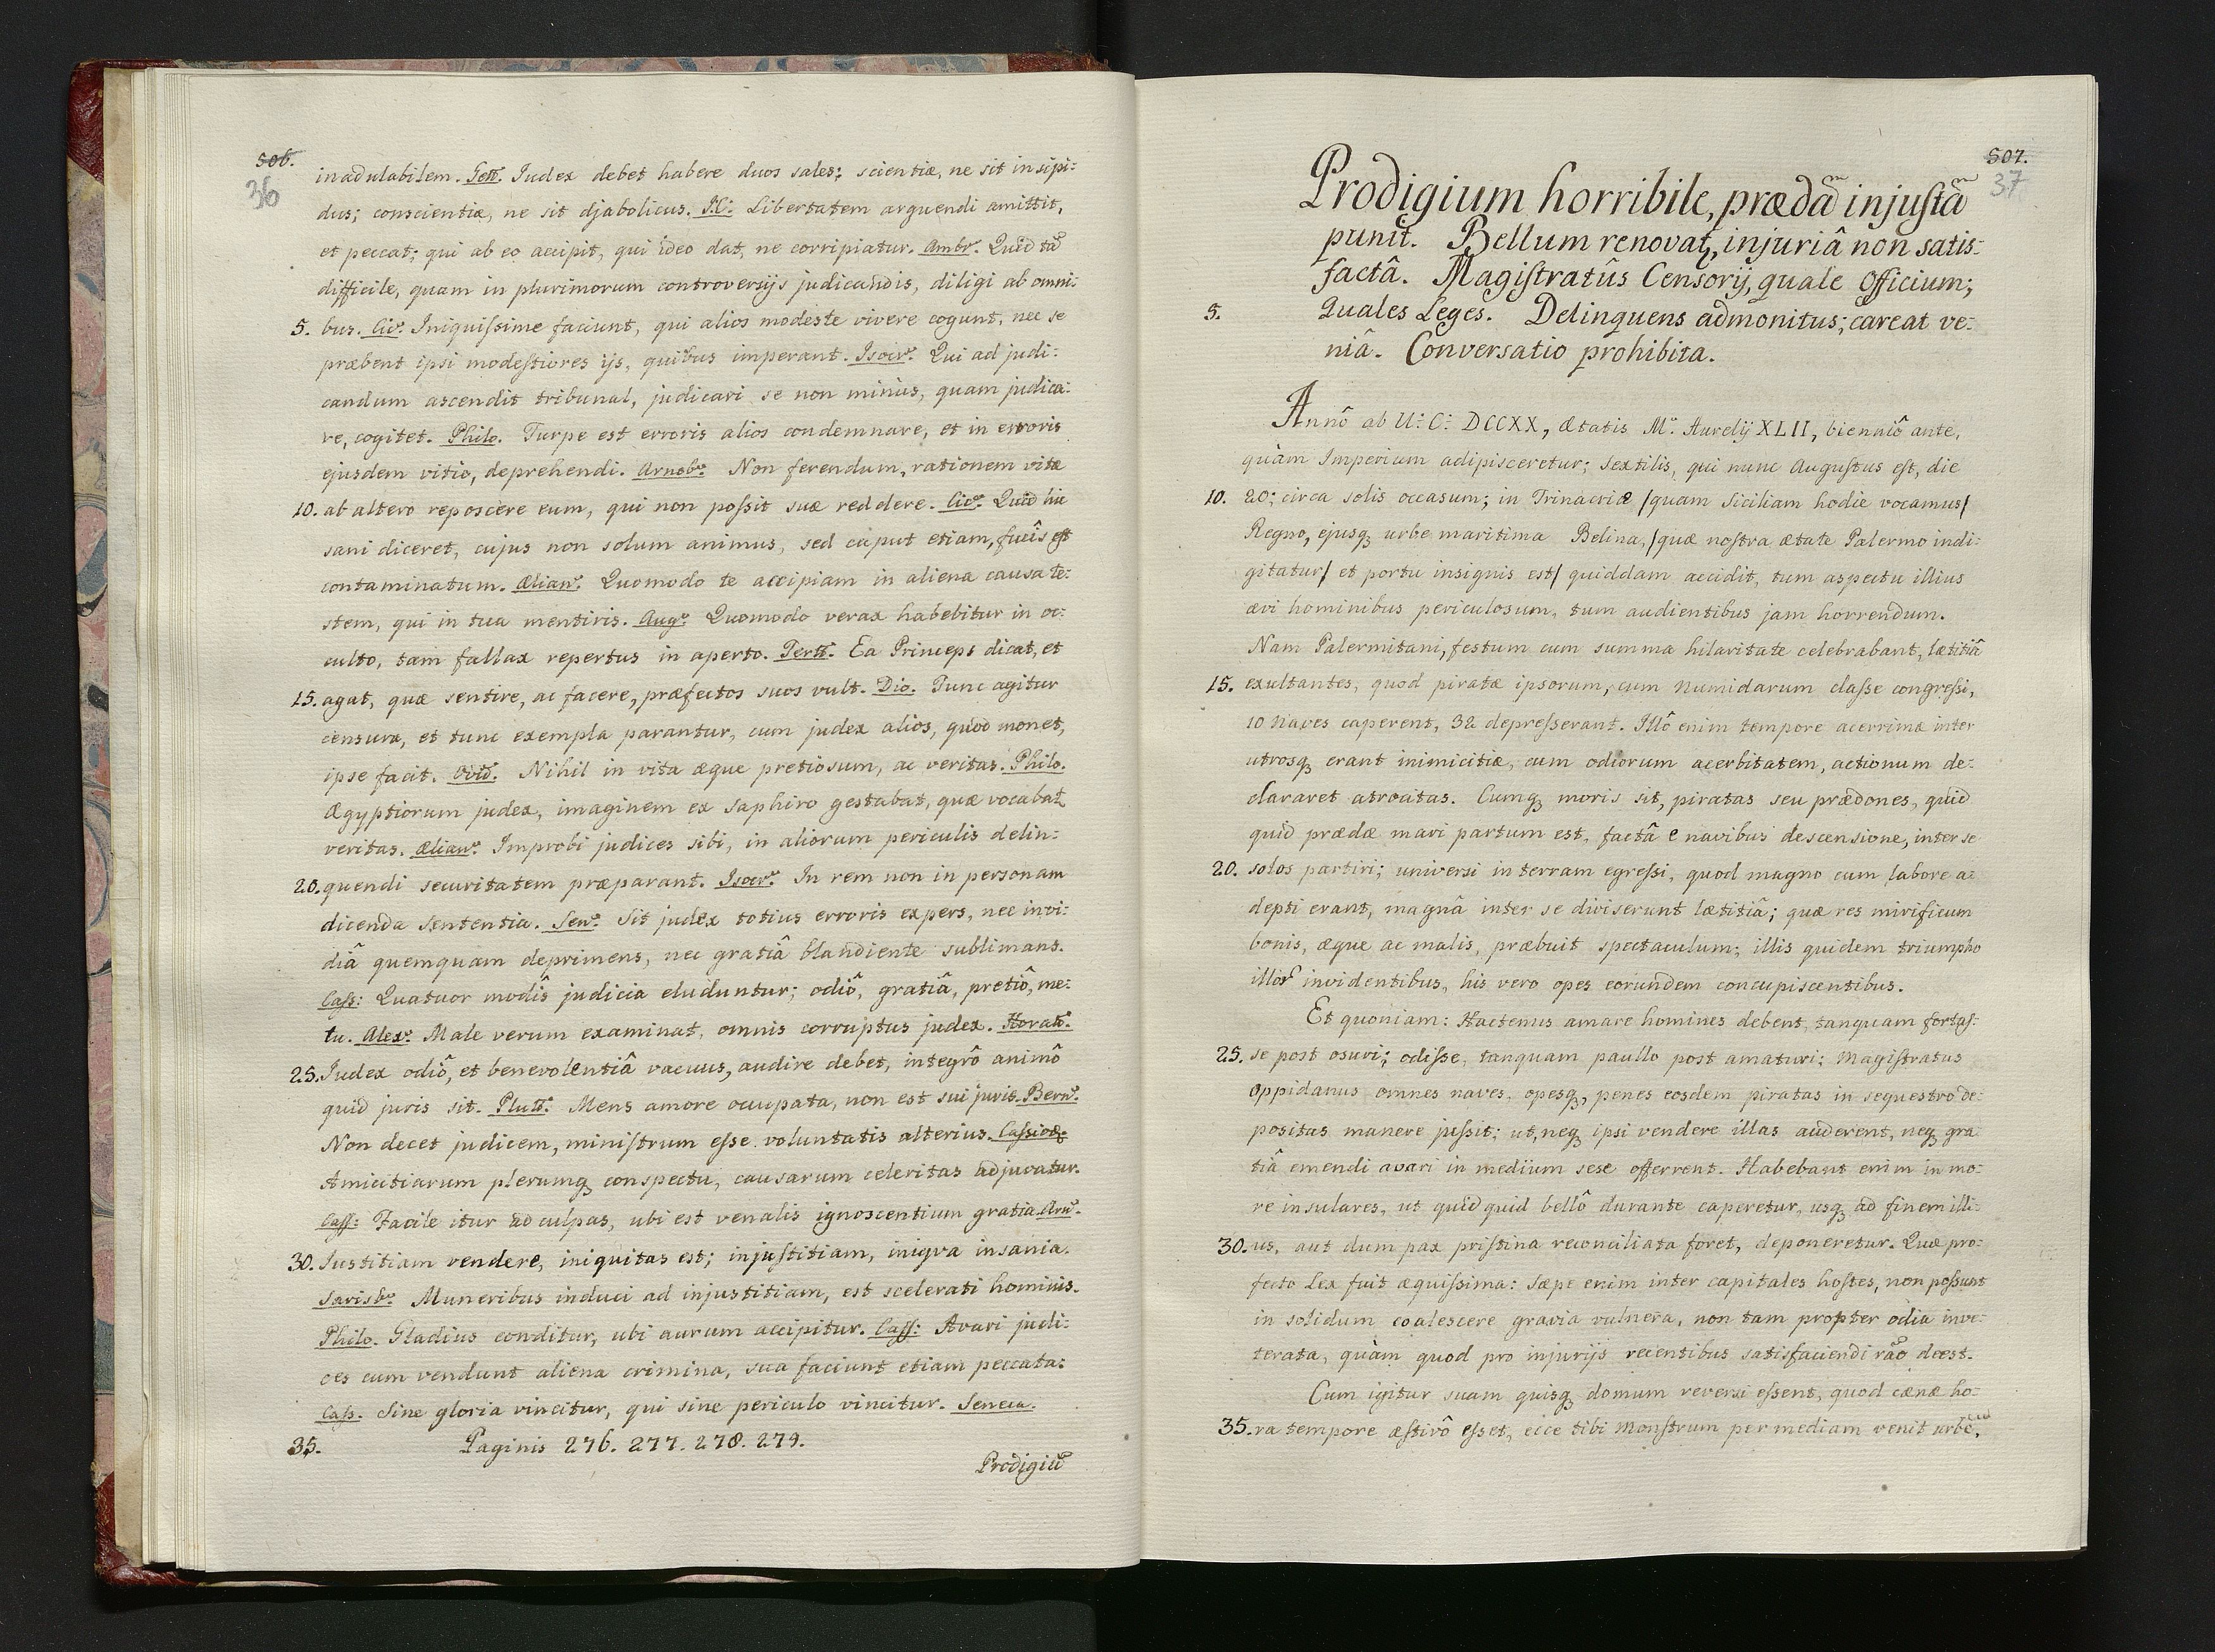 506.
36
inadulabilem. Gell. Iudex debet habere duos sales; scientiæ, ne sit insipi:
dus; conscientiæ, ne sit djabolicus. I.C: Libertatem arguendi amittit,
et peccat; qui ab eo accipit, qui ideo dat, ne corripiatur. Ambr. Quid tã
difficile, quam in plurimorum controversijs judicandis, diligi ab omni:
5. bus. Cic. Iniquissime faciunt, qui alios modeste vivere cogunt, nec se
præbent ipsi modestiores ijs, quibus imperant. Isocr. Qui ad judi:
candum ascendit tribunal, judicari se non minus, quam judica:
re, cogitet. Philo. Turpe est erroris alios condemnare, et in erroris
ejusdem vitio, deprehendi. Arnob. Non ferendum, rationem vitæ
10. ab altero reposcere eum, qui non possit suæ reddere. Cic. Quid hic
sani diceret, cujus non solum animus, sed caput etiam, fucîs est
contaminatum. Ælian. Quomodo te accipiam in aliena causa te:
stem, qui in tua mentiris. Aug. Quomodo verax habebitur in oc:
culto, tam fallax repertus in aperto. Tertt. Ea Princeps dicat, et
15. agat, quæ sentire, ac facere, præfectos suos vult. Dio. Tunc agitur
censura, et tunc exempla parantur, cum judex alios, quod monet,
ipse facit. Ovid. Nihil in vita æque pretiosum, ac veritas. Philo.
Ægyptiorum judex, imaginem ex saphiro gestabat, quæ vocabat
veritas. Ælian. Improbi judices sibi, in aliorum periculis delin:
20. quendi securitatem præparant. Isocr. In rem non in personam
dicenda sententia. Sen. Sit judex totius erroris expers, nec invi:
diâ quemquam deprimens, nec gratiâ blandiente sublimans.
Cass: Quatuor modîs judicia eluduntur; odiô, gratiâ, pretiô, me:
tu. Alex. Male verum examinat, omnis corruptus judex. Horatt.
25. Iudex odiô, et benevolentiâ vacuus, audire debet, integrô animô
quid juris sit. Plutt. Mens amore occupata, non est sui juris. Bern.
Non decet judicem, ministrum esse voluntatis alterius. Cassiod.
Amicitiarum plerumq₃ conspectu, causarum celeritas adjuvatur.
Cass: Facile itur ad culpas, ubi est venalis ignoscentium gratia. Arn.
30. Iustitiam vendere, iniquitas est; injustitiam, iniqva insania.
Sarisb. Muneribus induci ad injustitiam, est scelerati hominis.
Philo. Gladius conditur, ubi aurum accipitur. Cass: Avari judi:
ces cum vendunt aliena crimina, sua faciunt etiam peccata:
Cass. Sine gloria vincitur, qui sine periculo vincitur. Seneca.
35. Paginis 276. 277. 278. 279.
Prodigiũ
507.
37
Prodigium horribile, prædã injustã
punit. Bellum renovat, injuriâ non satis:
factâ. Magistratûs Censorij, quale Officium;
5. Quales Leges. Delinquens admonitus; careat ve:
niâ. Conversatio prohibita.
Annô ab U: C: DCCXX, ætatis M. Aurelij XLII, bienniô ante,
quàm Imperium adipisceretur; Sextilis, qui nunc Augustus est, die
10. 20; circa solis occasum; in Trinacriæ /quam Siciliam hodie vocamus/
Regno, ejusq₃ urbe maritima Belina, /quæ nostra ætate Palermo indi:
gitatur/ et portu insignis est/ quiddam accidit, tum aspectu illius
ævi hominibus periculosum, tum audientibus jam horrendum.
Nam Palermitani, festum cum summa hilaritate celebrabant, lætitiâ
15. exultantes, quod piratæ ipsorum, cum Numidarum classe congressi,
10 naves caperent, 32 depresserant. Illô enim tempore acerrimæ inter
utrosq₃ erant inimicitiæ, cum odiorum acerbitatem, actionum de:
clararet atrocitas. Cumq₃ moris sit, piratas seu prædones, quid
quid prædæ mari partum est, factâ e navibus descensione, inter se
20. solos partiri; universi in terram egressi, quod magno cum labore a:
depti erant, magnâ inter se diviserunt lætitiâ; quæ res mirificum
bonis, æque ac malis, præbuit spectaculum; illis quidem triumpho
illor invidentibus, his vero opes eorundem concupiscentibus.
Et quoniam: Hactenus amare homines debent, tanquam fortas:
25. se post osuri; odisse, tanquam paullo post amaturi: Magistratus
oppidanus omnes naves, opesq₃, penes eosdem piratas in sequestro de:
positas manere jussit; ut, neq₃ ipsi vendere illas auderent, neq₃ gra
tiâ emendi avari in medium sese offerrent. Habebant enim in mo:
re insulares, ut quidquid bellô durante caperetur, usq₃ ad finem illi:
30. us, aut dum pax pristina reconciliata foret, deponeretur. Quæ pro:
fecto Lex fuit æquissima: sæpe enim inter capitales hostes, non possunt
in solidum coalescere gravia vulnera, non tam propter odia inve:
terata, quàm quod pro injurijs recentibus satisfaciendi rão deest.
Cum igitur suam quisq₃ domum reversi essent, quod cænæ ho:
35. ra tempore æstivô esset, ecce tibi monstrum per mediam venit urbẽ,